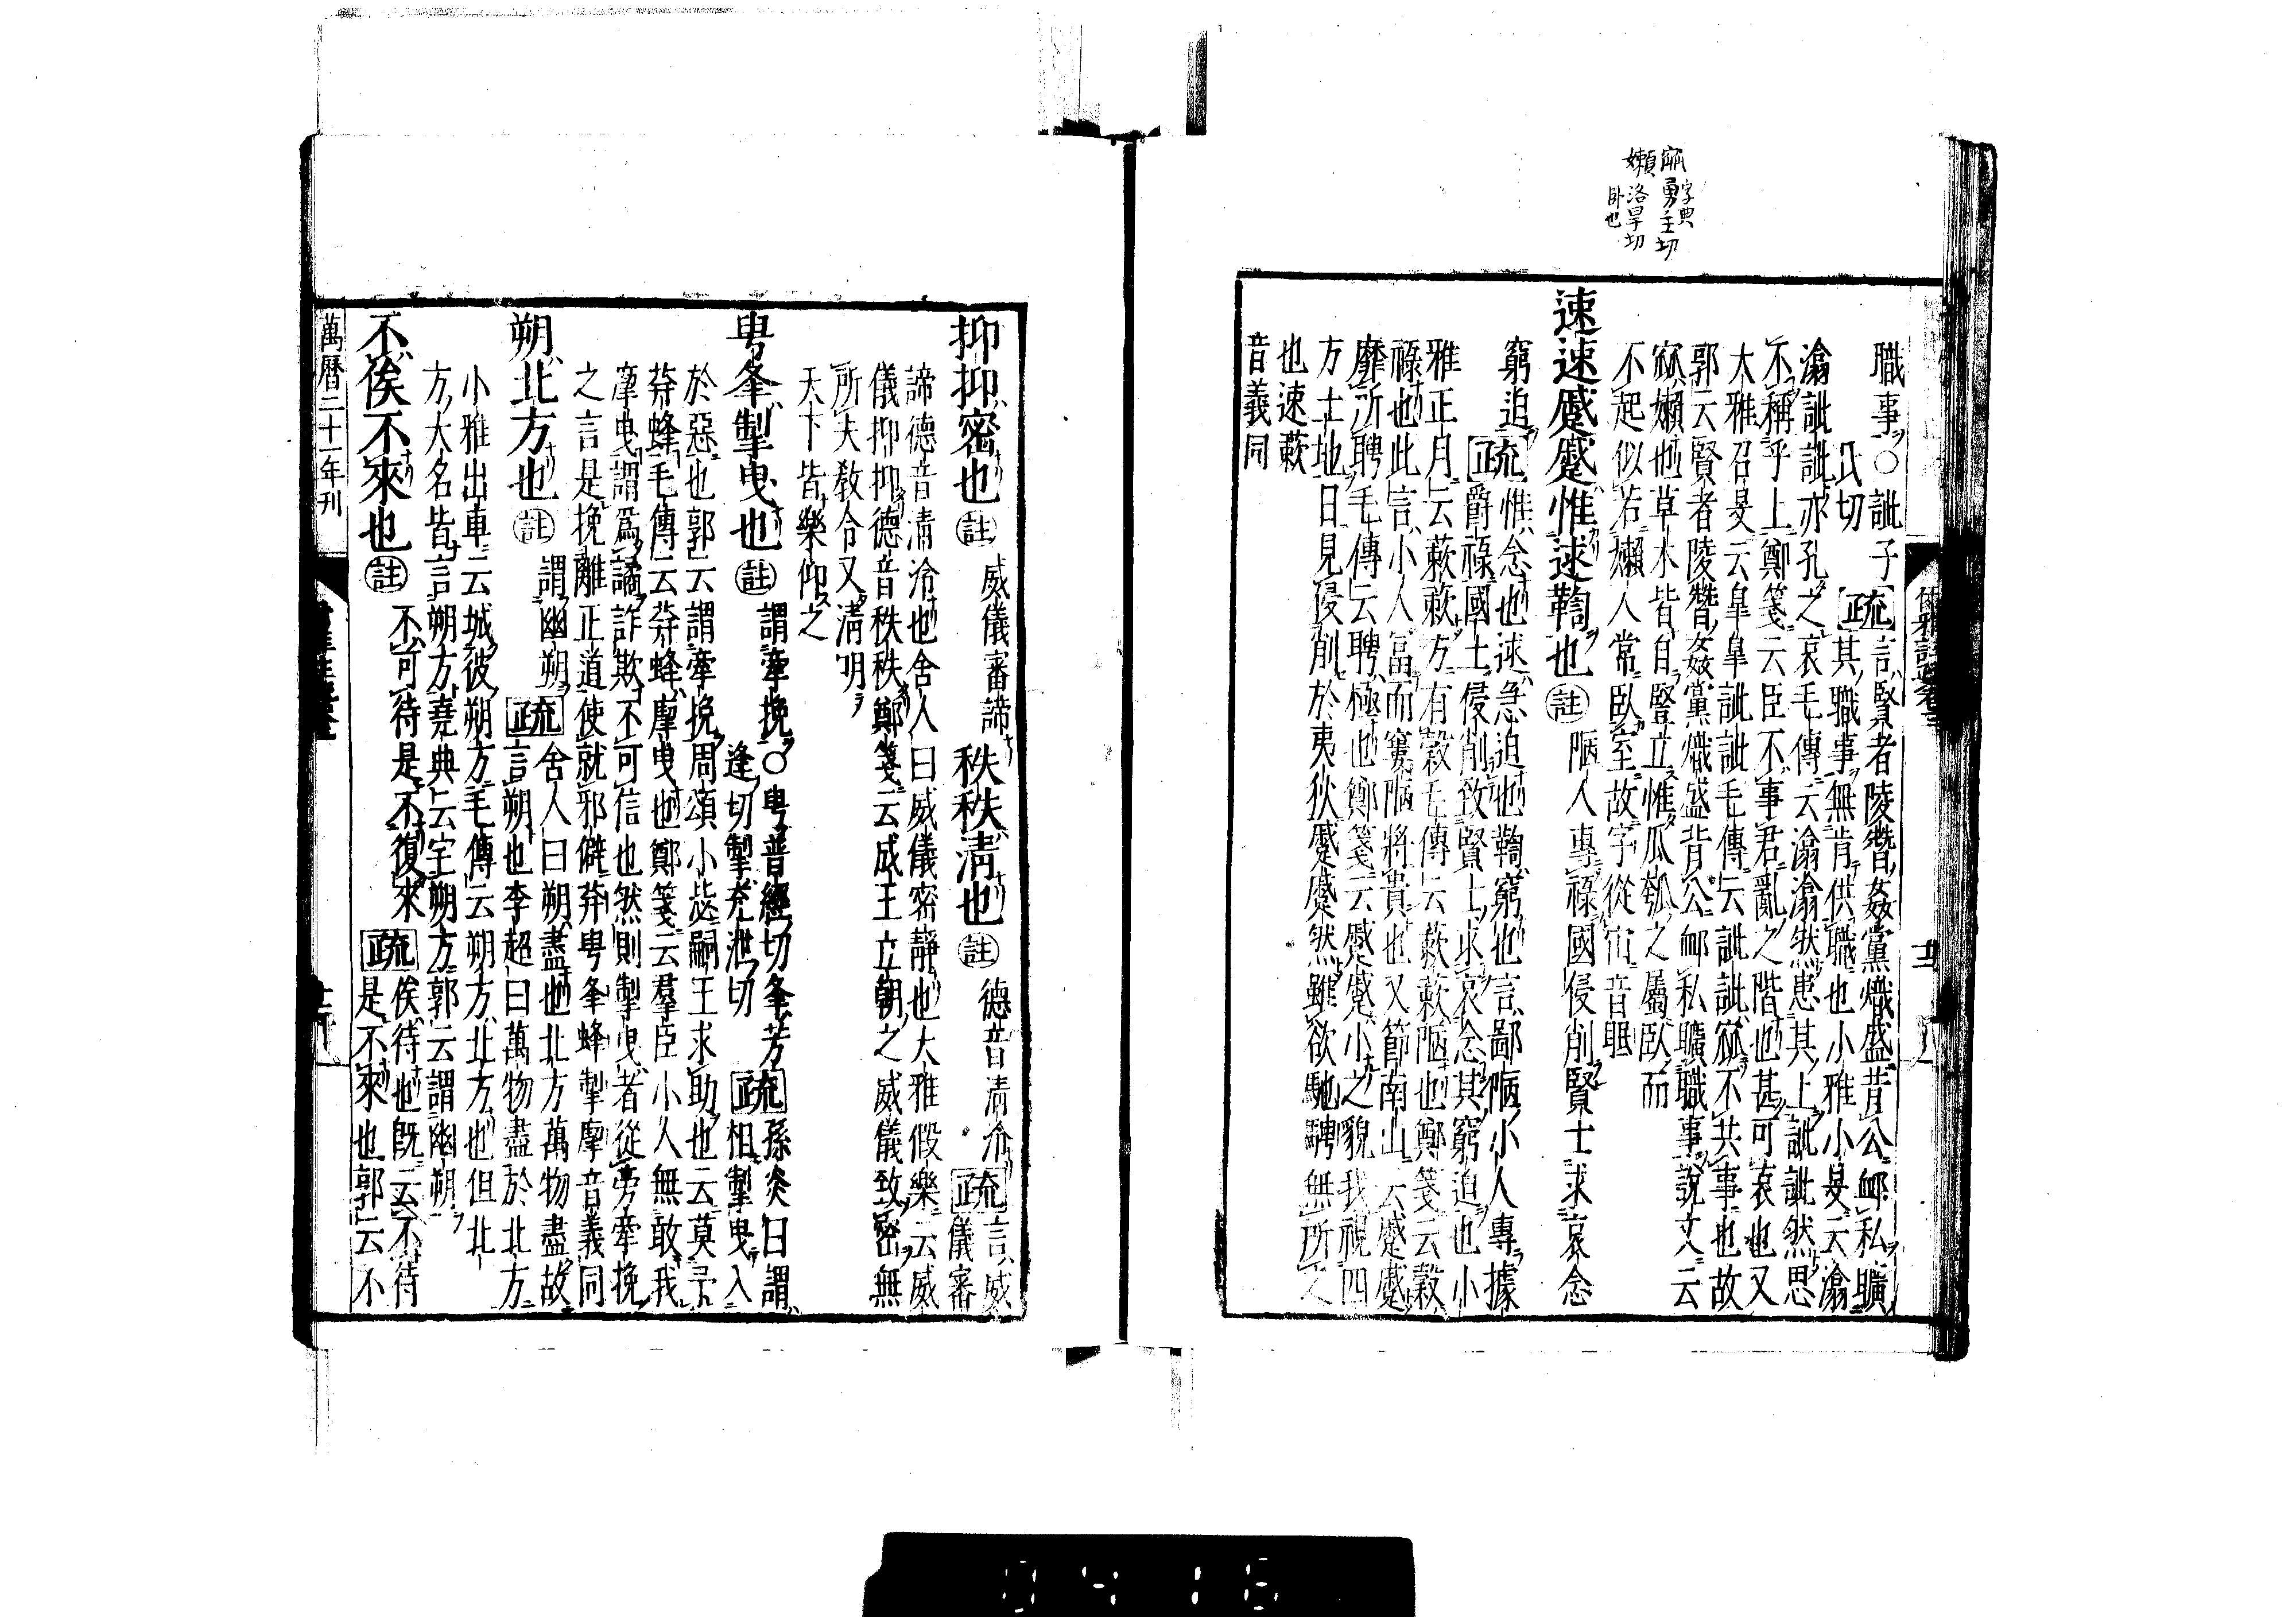 職事○訿子
氏切
疏言賢者陵替姦黨熾盛背公卹私曠
其職事無肯供職也小雅小旻云潝
潝訿訿亦孔之哀毛傳云潝潝然患其上訿訿然思
不稱乎上鄭箋云臣不事君亂之階也甚可哀也又
大雅召旻云皐皐訿訿毛傳云訿訿窳不共事也故
郭云賢者陵替姦黨熾盛背公卹私曠職事說文云
窳嬾也草木皆自豎立惟瓜瓠之屬臥而
不起似若嬾人常臥室故字從宀音眠
速速蹙蹙惟逑鞫也
註陋人專祿國侵削賢士求哀念
窮迫
疏惟念也逑急迫也鞫窮也言鄙陋小人專據
爵祿國土侵削致賢士求哀念其窮迫也小
雅正月云蔌蔌方有穀毛傳云蔌蔌陋也鄭箋云穀
祿也此言小人富而窶陋將貴也又節南山云蹙蹙
靡所騁毛傳云騁極也鄭箋云蹙蹙小之貌我視四
方土地日見侵削於夷狄蹙蹙然雖欲馳騁無所之
也速蔌
音義同
字典
窳勇主切
嬾洛旱切
臥也
爾雅註疏卷三
抑抑密也
註威儀審諦
秩秩清也
註德音清泠
疏言威
儀審
諦德音清泠也舍人曰威儀密靜也大雅假樂云威
儀抑抑德音秩秩鄭箋云成王立朝之威儀致密無
所失教令又清明
天下皆樂仰之
甹夆掣曳也
註謂牽挽○甹普經切夆芳
逢切掣充泄切
疏孫炎曰謂
相掣曳入
於惡也郭云謂牽挽周頌小毖嗣王求助也云莫予
荓蜂毛傳云荓蜂摩曳也鄭箋云羣臣小人無敢我
摩曳謂爲譎詐欺不可信也然則掣曳者從旁牽挽
之言是挽離正道使就邪僻荓甹夆蜂掣摩音義同
朔北方也
註謂幽朔
疏舍人曰朔盡也北方萬物盡故
言朔也李超曰萬物盡於北方
小雅出車云城彼朔方毛傳云朔方北方也但北
方大名皆言朔方堯典云宅朔方郭云謂幽朔
不俟不來也
註不可待是不復來
疏俟待也旣云不待
是不來也郭云不
萬曆二十一年刊
0416